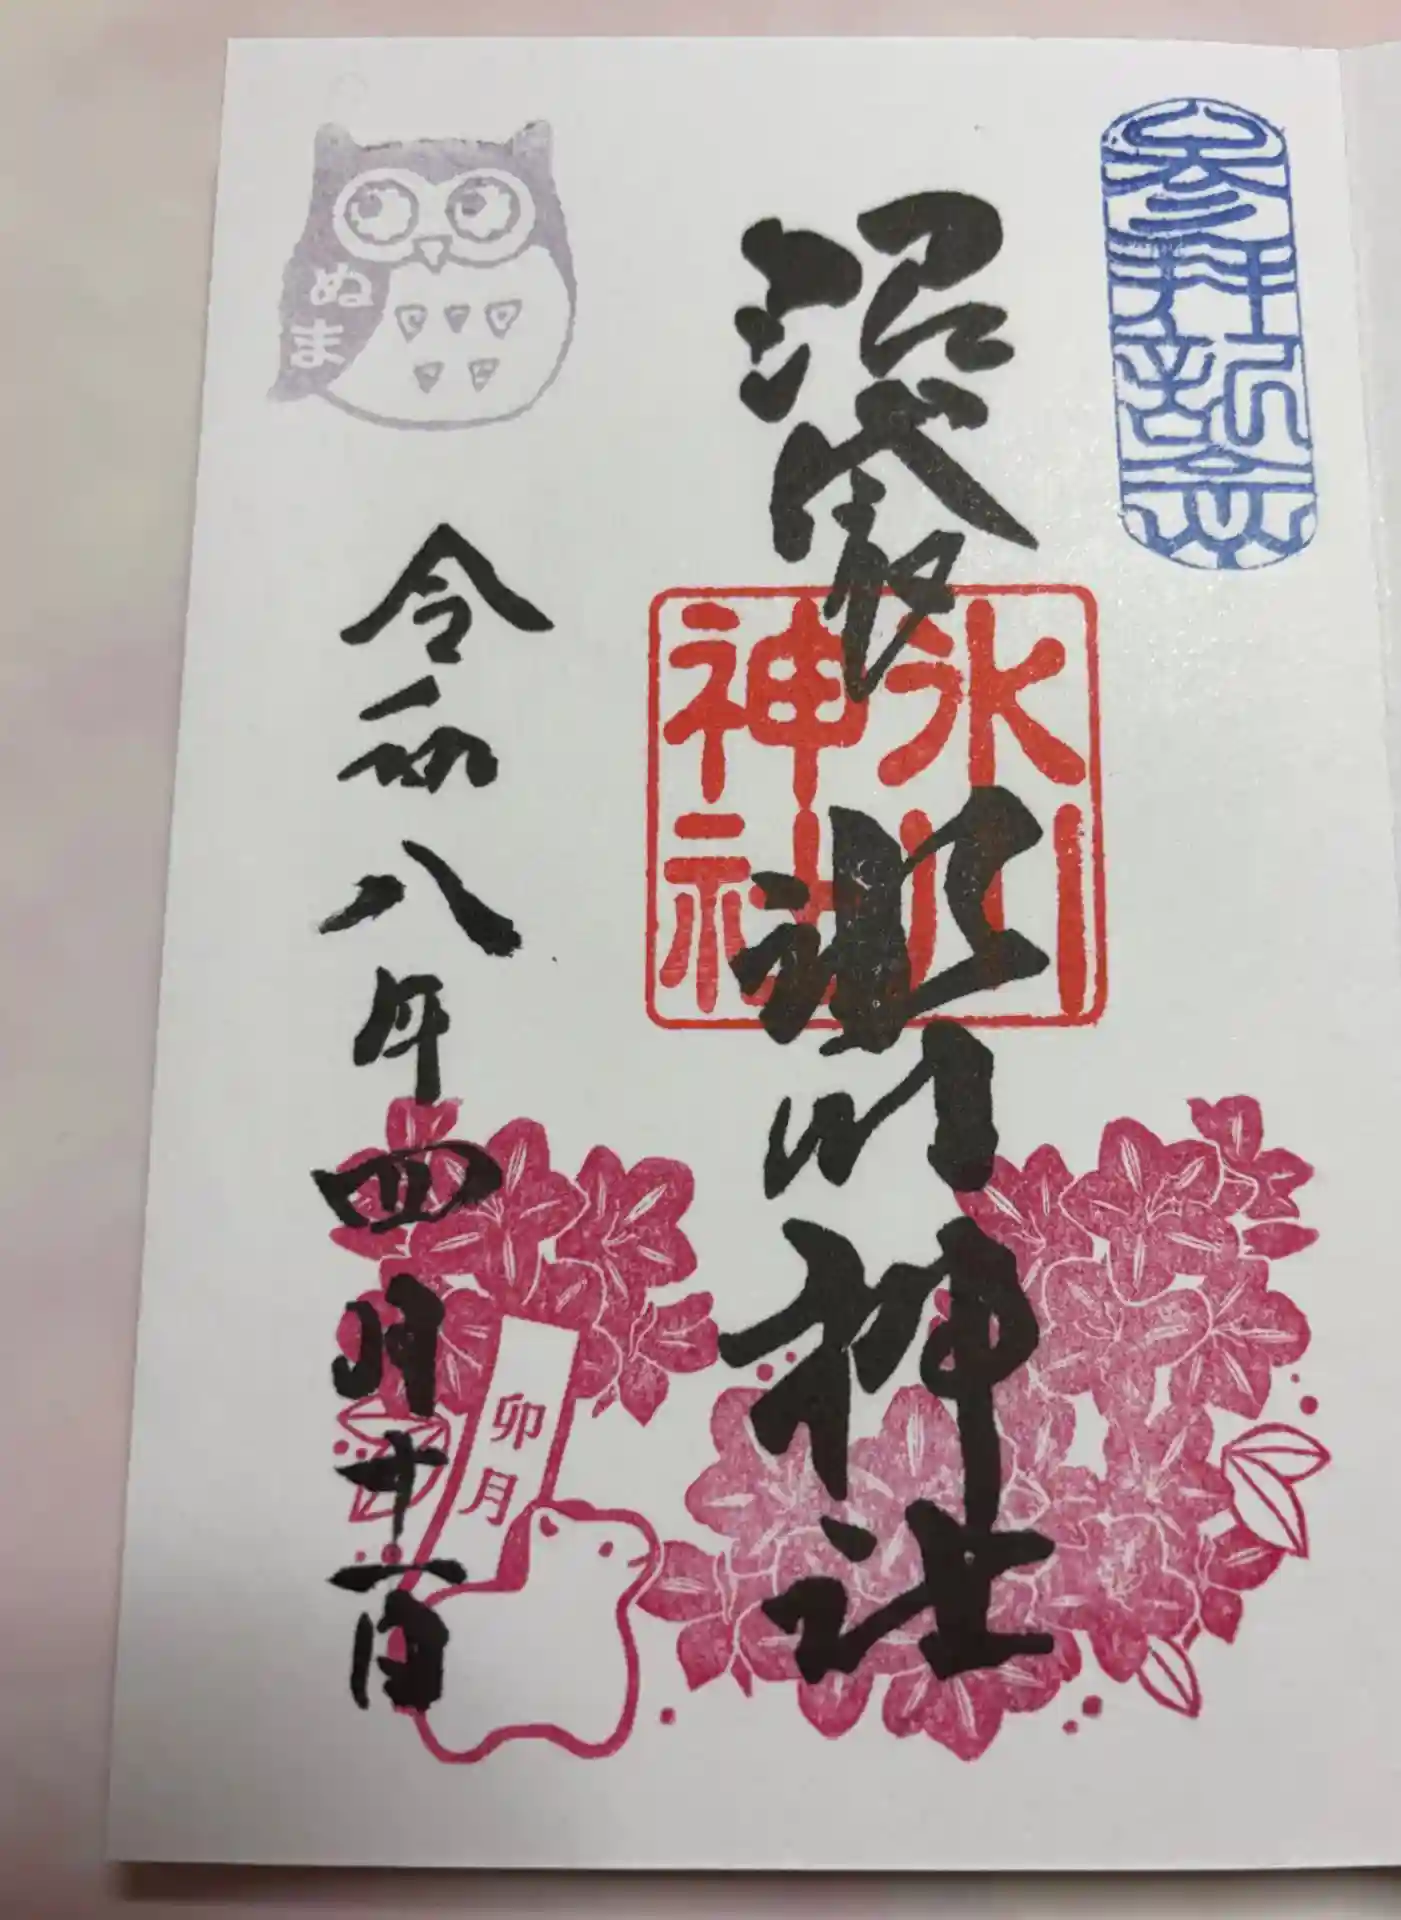 参拝記念
沼袋氷川神社
氷川
神社
ぬま
令和八年四月十一日
卯月